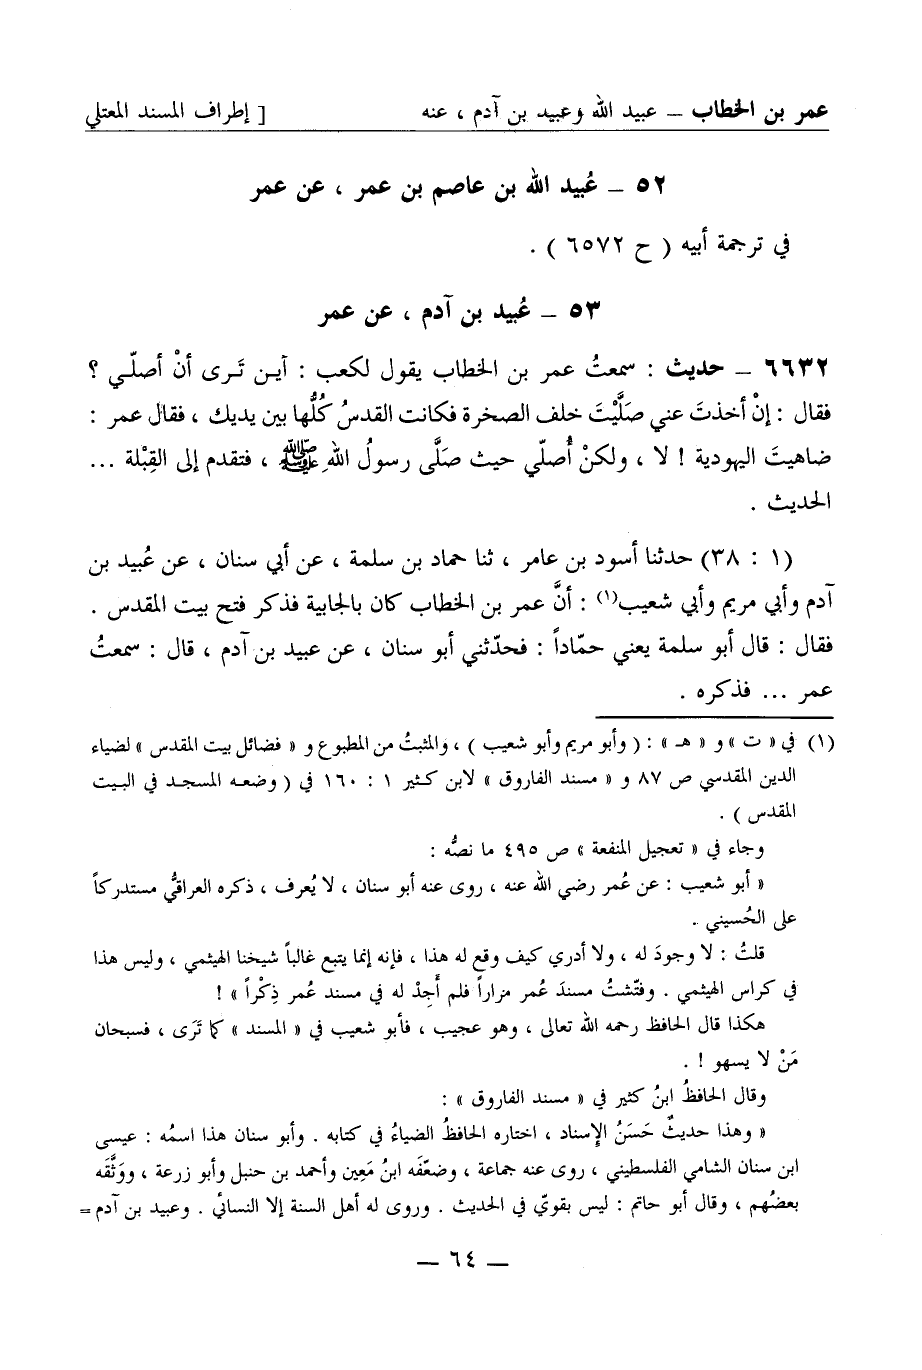 عمر بن الخطاب – عبيد الله وعبيد بن آدم ، عنه [ إطراف المسند المعتلي
٥٢ – عُبيد الله بن عاصم بن عمر ، عن عمر
في ترجمة أبيه ( ح ٦٥٧٢ ) .
٥٣ – عُبيد بن آدم ، عن عمر
٦٦٣٢ – حديث : سمعتُ عمر بن الخطاب يقول لكعب : أيـن تَـرى أنْ أصلّـي ؟
فقال : إنْ أخذتَ عني صَلَّيْتَ خلف الصخرة فكانت القدسُ كُلُّها بين يديك ، فقال عمر :
ضاهيتَ اليهودية ! لا ، ولكنْ أُصلّي حيث صَلَّى رسولُ اللهِ ﷺ ، فتقدم إلى القِبْلة ...
الحديث .
(١ : ٣٨) حدثنا أسود بن عامر ، ثنا حماد بن سلمة ، عن أبي سنان ، عن عُبيد بن
آدم وأبي مريم وأبي شعيب(١) : أنَّ عمر بن الخطاب كان بالجابية فذكر فتح بيت المقدس .
فقال : قال أبو سلمة يعني حمّاداً : فحدّثني أبو سنان ، عن عبيد بن آدم ، قال : سمعتُ
عمر ... فذكره .
(١) في « ت » و « هـ » : ( وأبو مريم وأبو شعيب ) ، والمثبتُ من المطبوع و « فضائل بيت المقدس » لضياء
الدين المقدسي ص ٨٧ و « مسند الفاروق » لابن كـثير ١ : ١٦٠ في ( وضعـه المسجـد في البـيت
المقدس ) .
وجاء في « تعجيل المنفعة » ص ٤٩٥ ما نصُّه :
« أبو شعيب : عن عُمر رضي الله عنه ، روى عنه أبو سنان ، لا يُعرف ، ذكره العراقيُّ مستدركاً
على الحُسيني .
قلتُ : لا وجودَ له ، ولا أدري كيف وقع له هذا ، فإنه إنما يتبع غالباً شيخنا الهيثمي ، وليس هذا
في كراس الهيثمي . وفتّشتُ مسندَ عُمر مراراً فلم أَجِدْ له في مسند عُمر ذِكْراً » !
هكذا قال الحافظ رحمه الله تعالى ، وهو عجيب ، فأبو شعيب في « المسند » كما تَرَى ، فسبحان
مَنْ لا يسهو ! .
وقال الحافظُ ابنُ كثير في « مسند الفاروق » :
« وهذا حديثٌ حَسَنُ الإسناد ، اختاره الحافظُ الضياءُ في كتابه . وأبو سنان هذا اسمُه : عيسى
ابن سنان الشامي الفلسطيني ، روى عنه جماعة ، وضعّفَه ابنُ مَعِين وأحمد بن حنبل وأبو زرعة ، ووَثَّقَه
بعضُهم ، وقال أبو حاتم : ليس بقويّ في الحديث . وروى له أهل السنة إلا النسائي . وعبيد بن آدم =
– ٦٤ –